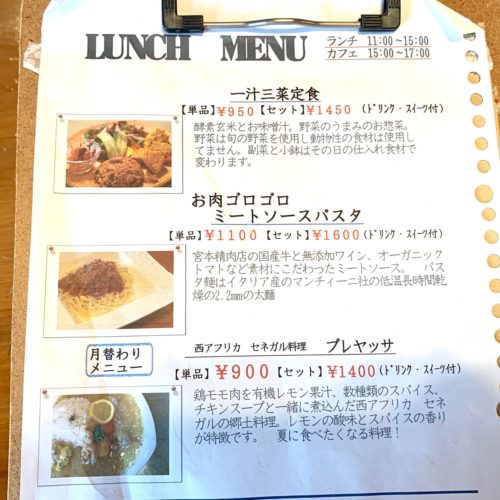 LUNCH MENU
ランチ 11:00~15:00
カフェ 15:00~17:00
一汁三菜定食
【単品】¥950【セット】¥1450 (ドリンク・スイーツ付)
酵素玄米とお味噌汁。野菜のうまみのお惣菜。
野菜は旬の野菜を使用し動物性の食材は使用し
てません。副菜と小鉢はその日の仕入れ食材で
変わります。
お肉ゴロゴロ
ミートソースパスタ
【単品】¥1100 【セット】¥1600(ドリンク・スイーツ付)
宮本精肉店の国産牛と無添加ワイン、オーガニック
トマトなど素材にこだわったミートソース。 パス
タ麺はイタリア産のマンティーニ社の低温長時間乾
燥の2.2mmの太麺
月替わり
メニュー
西アフリカ セネガル料理 プレヤッサ
【単品】¥900 【セット】¥1400(ドリンク・スイーツ付)
鶏モモ肉を有機レモン果汁、数種類のスパイス、
チキンスープと一緒に煮込んだ西アフリカ セネ
ガルの郷土料理。レモンの酸味とスパイスの香り
が特徴です。 夏に食べたくなる料理！